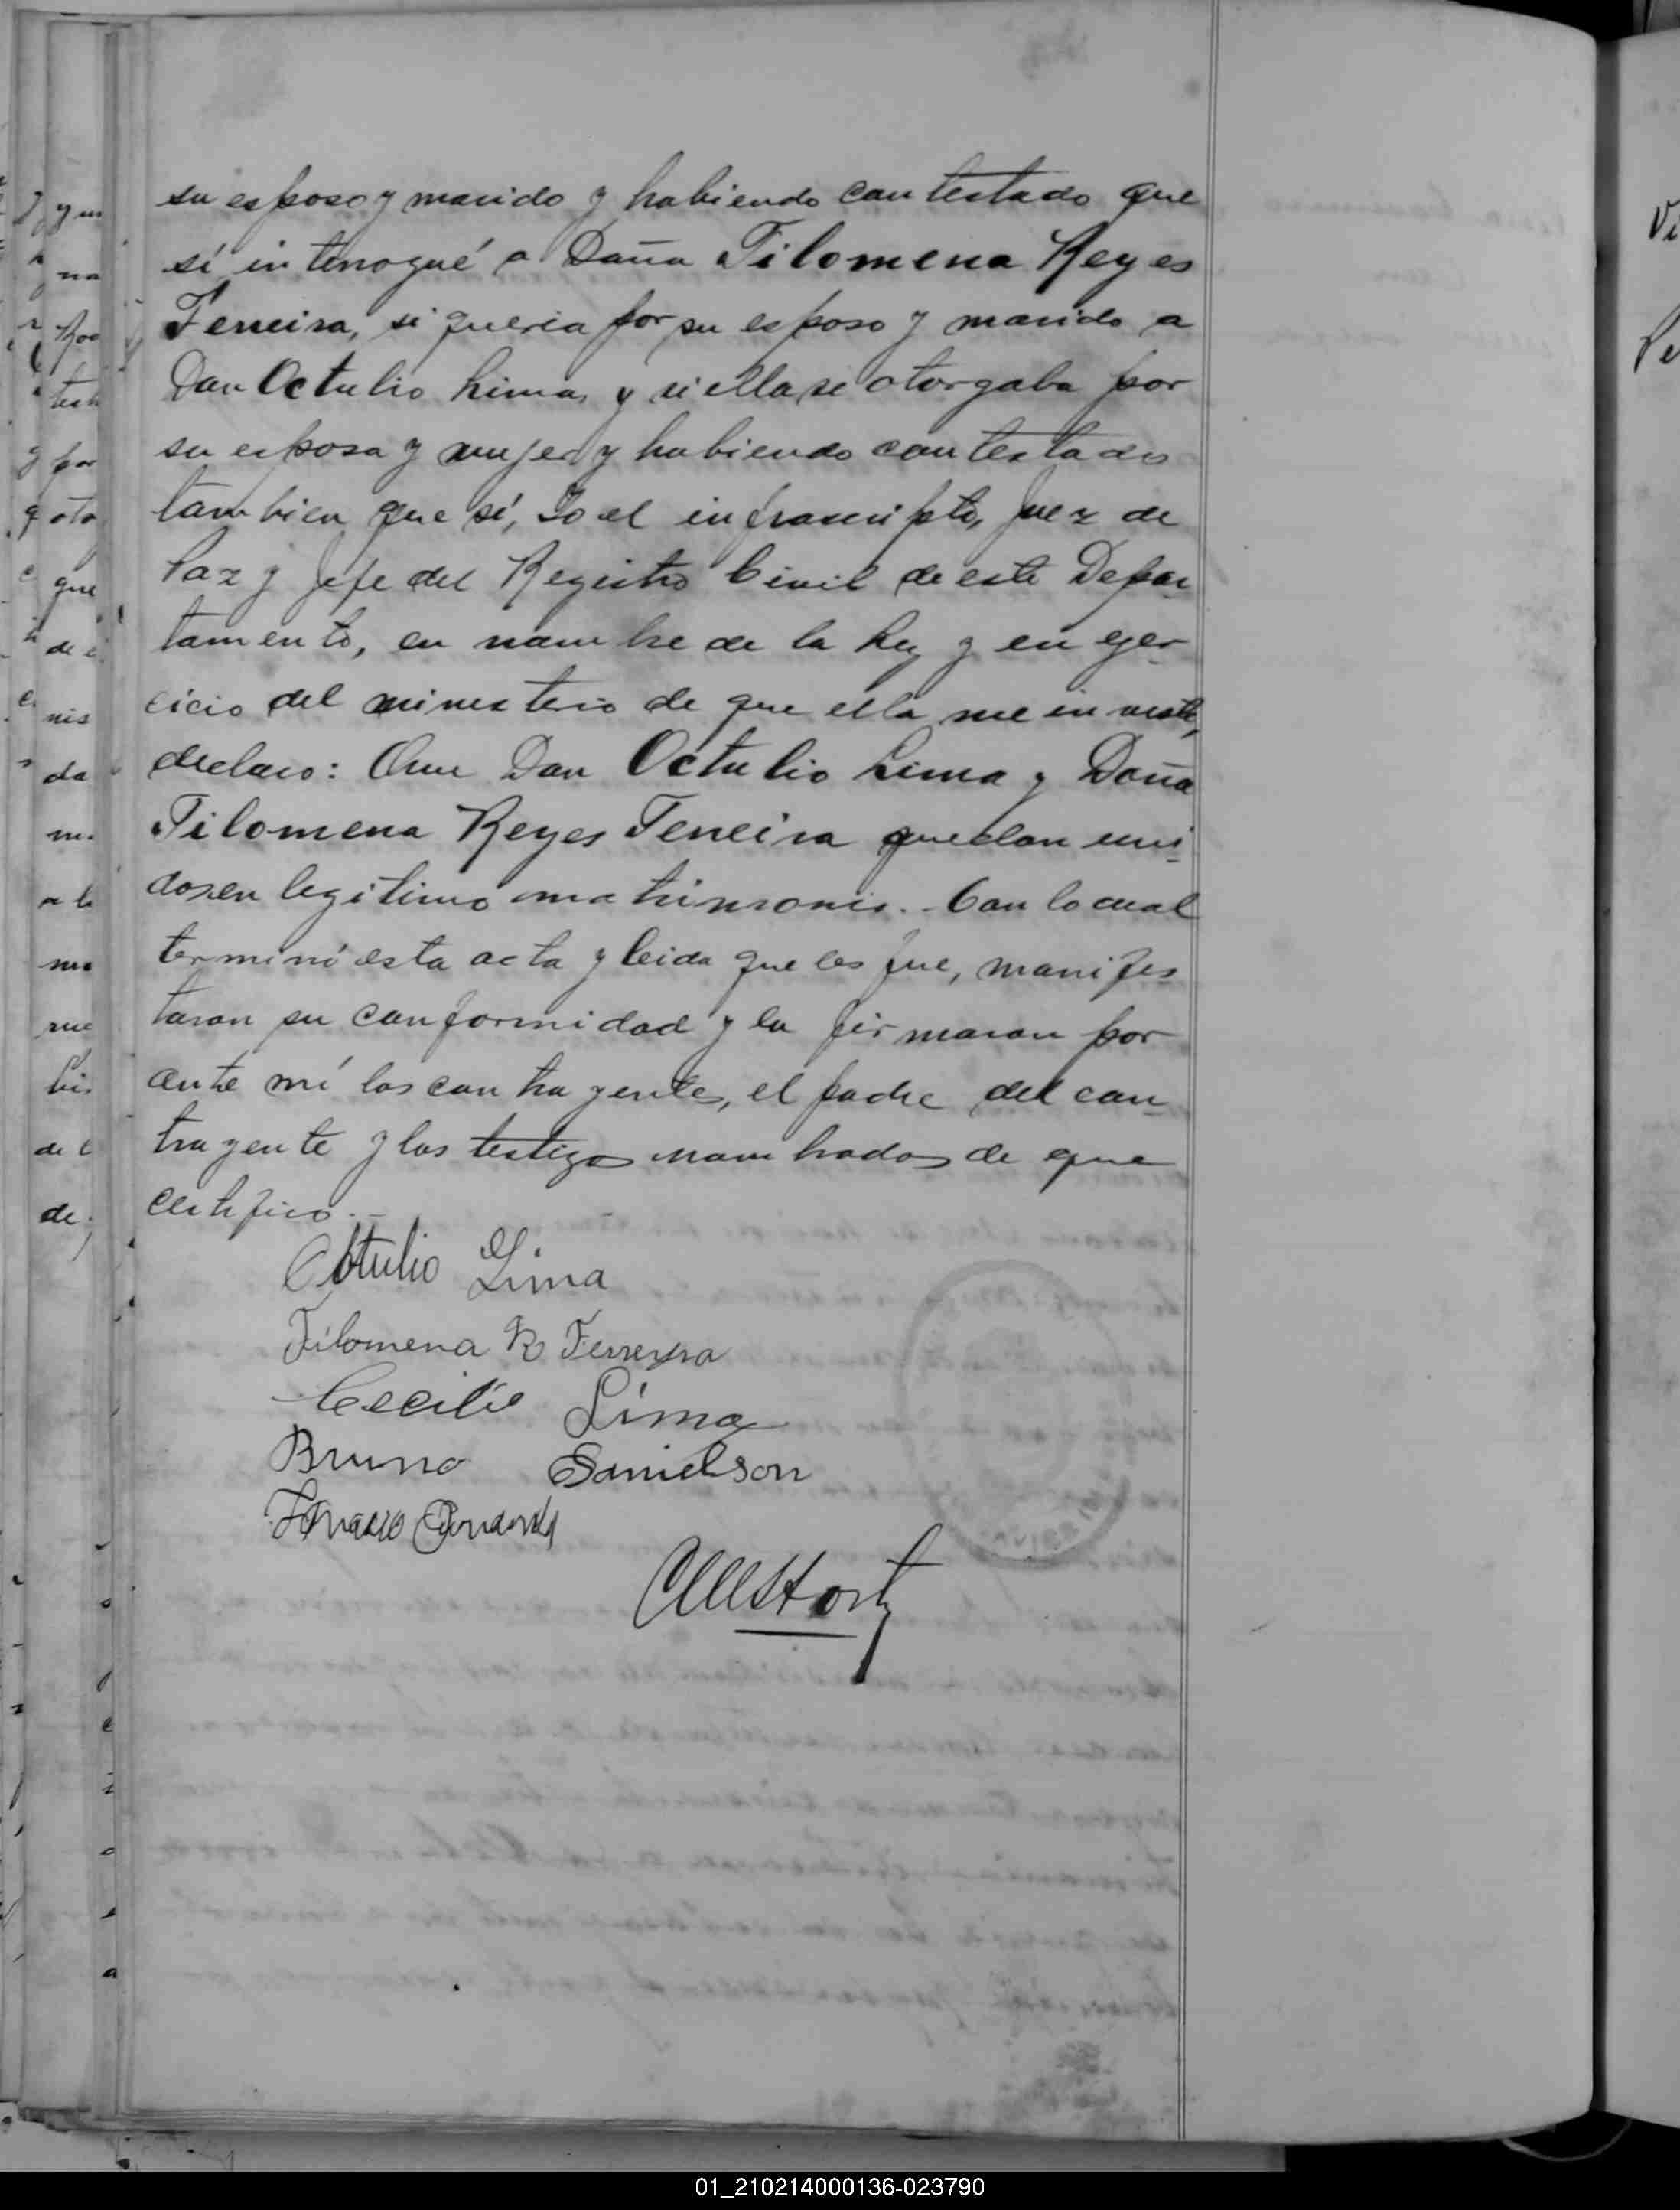 su esposo y marido y habiendo contestado que
sí interrogué a Doña Filomena Reyes
Ferreira, si queria por su esposo y marido a
Don Octulio Lima, y si ella se otorgaba por
su esposa y mujer y habiendo contestado
tambien que sí, Yo el infrascripto, Juez de
Paz y Jefe del Registro Civil de este Depar
tamento, en nombre de la Ley y en ejer-
cicio del ministerio de que ella me inviste,
declaro: Que Don Octulio Lima y Doña
Filomena Reyes Ferreira quedan uni-
dos en legitimo matrimonio. Con lo cual
terminó esta acta y leida que les fue, manifes
taron su conformidad y la firmaron por
ante mí los contrayentes, el padre del con-
trayente y los testigos nombrados de que
certifico.-
Octulio Lima
Filomena R Ferreyra
Cecilio Lima
Bruno Danielson
01_210214000136-023790